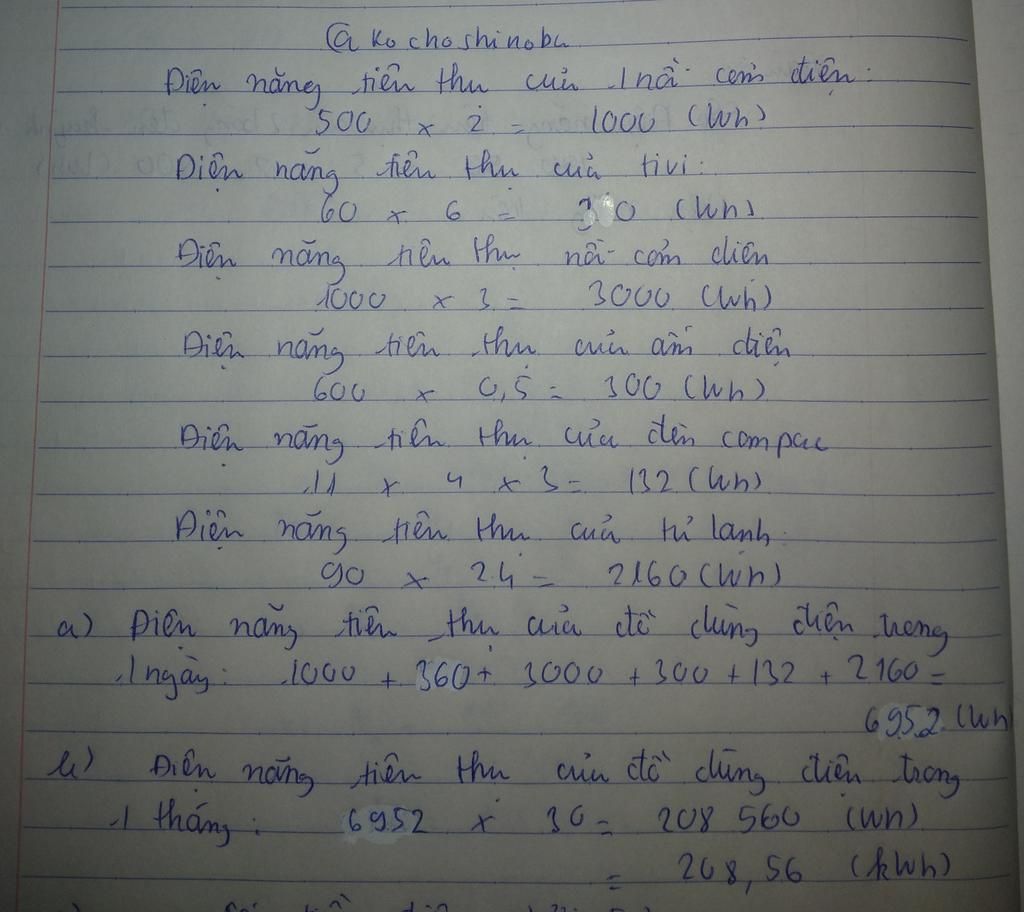 @kochoshinobu
Điện năng tiêu thụ của 1 nồi cơm điện:
500 x 2 = 1000 (Wh)
Điện năng tiêu thụ của tivi:
60 x 6 = 360 (Wh)
Điện năng tiêu thụ nồi cơm điện
1000 x 3 = 3000 (Wh)
Điện năng tiêu thụ của ấm điện
600 x 0,5 = 300 (Wh)
Điện năng tiêu thụ của đèn compac
11 x 4 x 3 = 132 (Wh)
Điện năng tiêu thụ của tủ lạnh
90 x 24 = 2160 (Wh)
a) Điện năng tiêu thụ của đồ dùng điện trong
1 ngày: 1000 + 360 + 3000 + 300 + 132 + 2160 =
6952 (Wh)
b) Điện năng tiêu thụ của đồ dùng điện trong
1 tháng: 6952 x 30 = 208 560 (Wh)
= 208,56 (kWh)